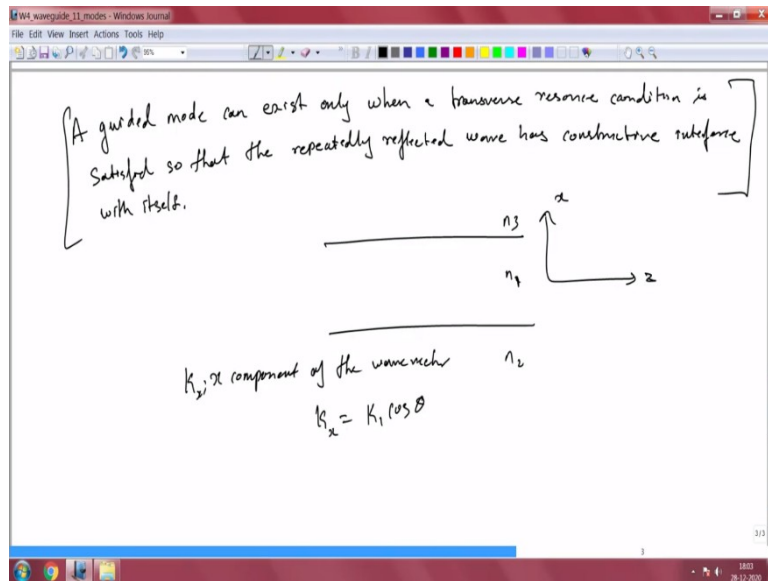 W4_waveguide_11_modes - Windows Journal
File Edit View Insert Actions Tools Help
A guided mode can exist only when a transverse resonce condition is
Satisfied so that the repeatedly reflected wave has constructive
with itself.
x
n3
n1
z
n2
Kx; x component of the wavevector
Kx = K1 cos θ
3/3
3
18:03
28-12-2020